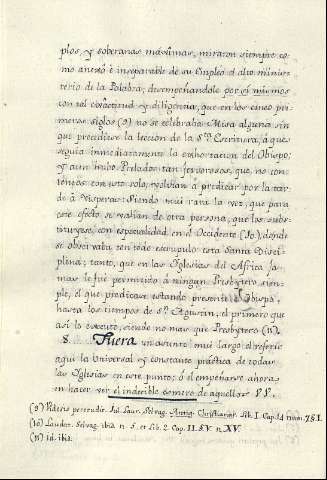 plos, y soberanas máximas, miraron siempre co-
mo anexô è inseparable de su Empleo el alto minis-
terio de la Palabra; desempeñandole por sí mismos
con tal exâctitud y diligencia, que en los cinco pri-
meros siglos (9) no se celebraba Missa alguna sin
que precediese la leccion de la S.ta Escritura, à que
seguia inmediatamente la exhortacion del Obispo;
y aun hubo Prelados tan fervorosos, que, no con-
tentos con esto solo, volvian à predicar por la tar-
de à Visperas: siendo mui rara la vez, que para
este efecto se valian de otra persona, que los subs-
tituyese, con especialidad en el Occidente (10), donde
se observaba con todo escrupulo esta Santa Disci-
plina; tanto, que en las Iglesias del Africa ja-
mas le fué permitido à ningun Presbytero sim-
ple, el que predicase estando presente el Obispo,
hasta los tiempos de S.n Agustin, el primero que
asi lo executó, siendo no mas que Presbytero (11).
8. Fuera un asunto mui largo el referir
aqui la Universal y constante práctica de todas
las Iglesias en este punto; ó el empeñarse ahora
en hacer ver el indecible esmero de aquellos PP.
(9) Videris per Jul. Laur. Selvag. Antiq. Christianar. Lib. I. Cap. 14 num. 7 § I.
(10) Laudat. Selvag. ibid. n. 5. et Lib. 2. Cap. 11. § V. n. XV.
(11) id. ibid.